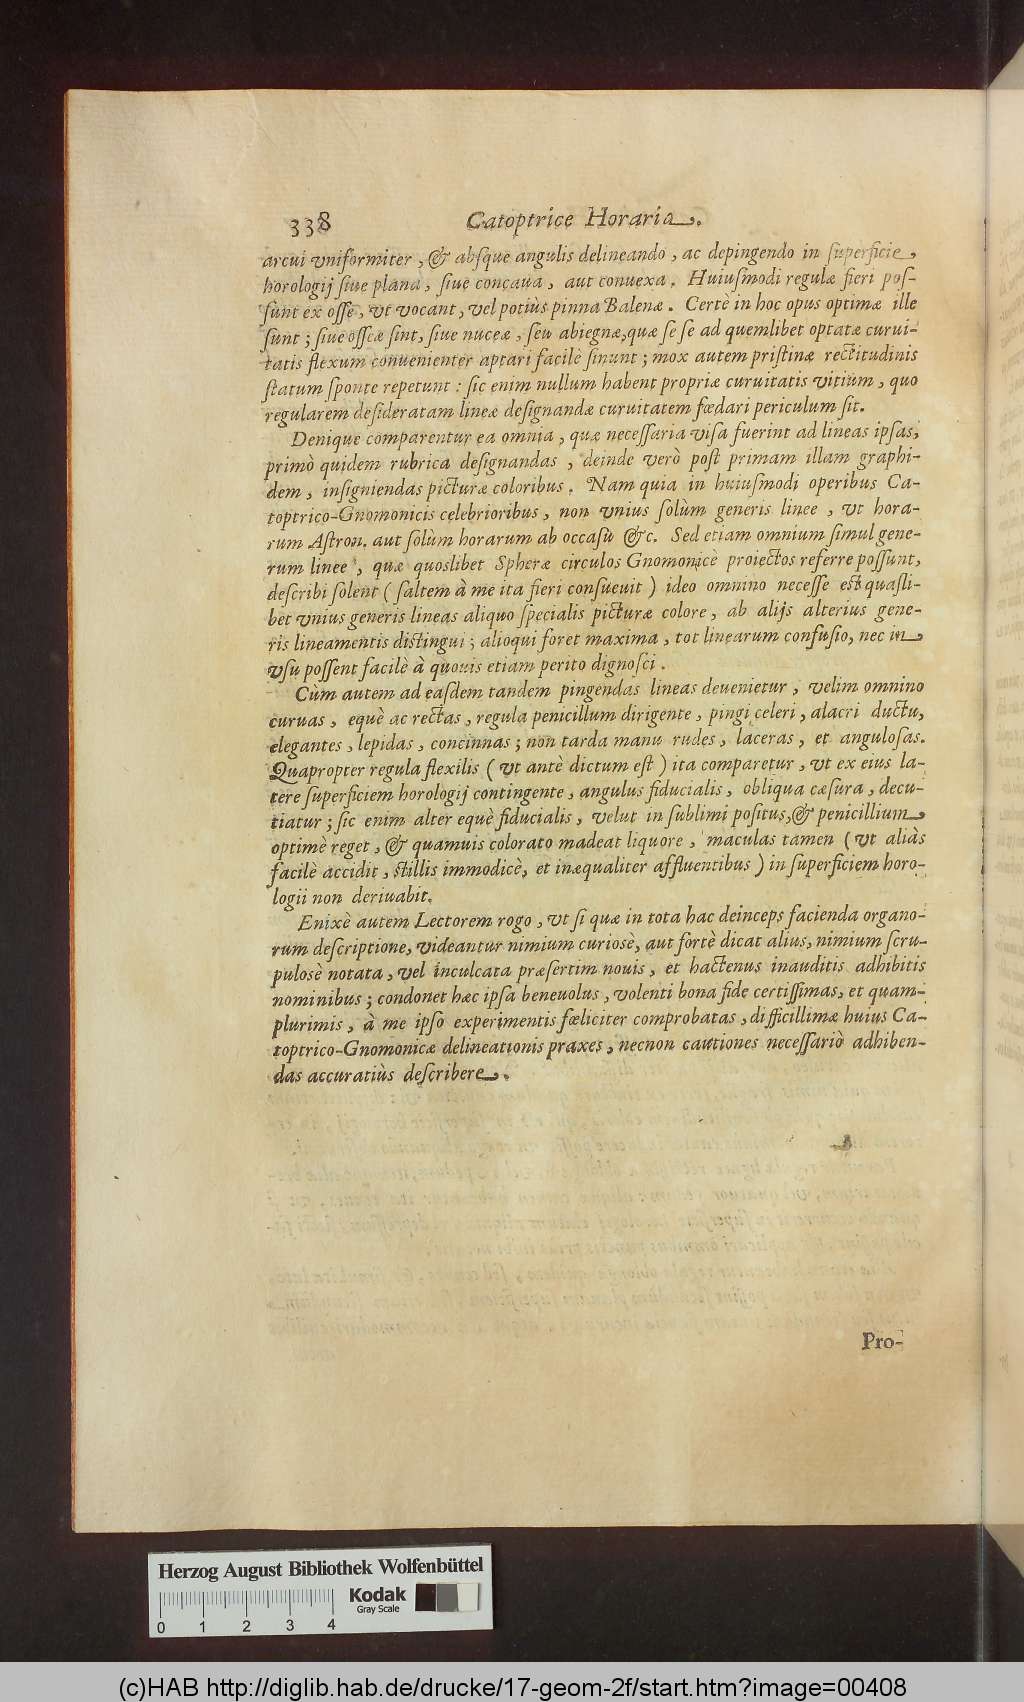 338 Catoptrice Horaria.
arcui vniformiter, & absque angulis delineando, ac depingendo in superficie,
horologij siue plana, siue concaua, aut conuexa. Huiusmodi regulæ fieri pos-
sunt ex osse, vt vocant, vel potiùs pinna Balenæ. Certè in hoc opus optimæ ille
sunt; siue osseæ sint, siue nuceæ, seu abiegnæ, quæ se se ad quemlibet optatæ curui-
tatis flexum conuenienter aptari facilè sinunt; mox autem pristinæ rectitudinis
statum sponte repetunt: sic enim nullum habent propriæ curuitatis vitium, quo
regularem desideratam lineæ designandæ curuitatem fœdari periculum sit.
Denique comparentur ea omnia, quæ necessaria visa fuerint ad lineas ipsas,
primò quidem rubrica designandas, deinde verò post primam illam graphi-
dem, insigniendas picturæ coloribus. Nam quia in huiusmodi operibus Ca-
toptrico-Gnomonicis celebrioribus, non vnius solùm generis linee, vt hora-
rum Astron. aut solùm horarum ab occasu &c. Sed etiam omnium simul gene-
rum linee, quæ quoslibet Spheræ circulos Gnomonicè proiectos referre possunt,
describi solent (saltem à me ita fieri consueuit) ideo omnino necesse est quasli-
bet vnius generis lineas aliquo specialis picturæ colore, ab alijs alterius gene-
ris lineamentis distingui; alioqui foret maxima, tot linearum confusio, nec in
vsu possent facilè à quouis etiam perito dignosci.
Cùm autem ad easdem tandem pingendas lineas deuenietur, velim omnino
curuas, equè ac rectas, regula penicillum dirigente, pingi celeri, alacri ductu,
elegantes, lepidas, concinnas; non tarda manu rudes, laceras, et angulosas.
Quapropter regula flexilis (vt antè dictum est) ita comparetur, vt ex eius la-
tere superficiem horologij contingente, angulus fiducialis, obliqua cæsura, decu-
tiatur; sic enim alter equè fiducialis, velut in sublimi positus, & penicillium
optimè reget, & quamuis colorato madeat liquore, maculas tamen (vt aliàs
facilè accidit, stillis immodicè, et inæqualiter affluentibus) in superficiem horo-
logii non deriuabit.
Enixè autem Lectorem rogo, vt si quæ in tota hac deinceps facienda organo-
rum descriptione, videantur nimium curiosè, aut fortè dicat alius, nimium scru-
pulosè notata, vel inculcata præsertim nouis, et hactenus inauditis adhibitis
nominibus; condonet hæc ipsa beneuolus, volenti bona fide certissimas, et quam-
plurimis, à me ipso experimentis fœliciter comprobatas, difficillimæ huius Ca-
toptrico-Gnomonicæ delineationis praxes, necnon cautiones necessariò adhiben-
das accuratiùs describere.
Pro-
Herzog August Bibliothek Wolfenbüttel
Kodak
Gray Scale
0 1 2 3 4
(c)HAB http://diglib.hab.de/drucke/17-geom-2f/start.htm?image=00408